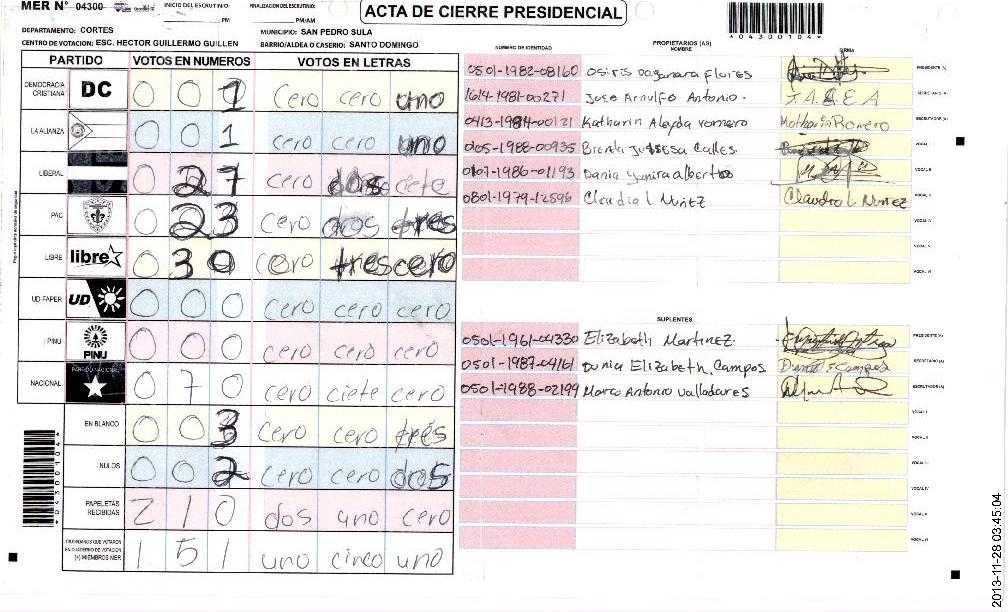 MER Nº 04300 INICIO DEL ESCRUTINIO: PM FINALIZACION DEL ESCRUTINIO: PM/AM
ACTA DE CIERRE PRESIDENCIAL
*04300104*
DEPARTAMENTO: CORTES MUNICIPIO: SAN PEDRO SULA
CENTRO DE VOTACION: ESC. HECTOR GUILLERMO GUILLEN BARRIO/ALDEA O CASERIO: SANTO DOMINGO
PARTIDO VOTOS EN NUMEROS VOTOS EN LETRAS
DEMOCRACIA CRISTIANA DC 0 0 1 cero cero uno
LA ALIANZA 0 0 1 cero cero uno
LIBERAL 0 27 cero dos ciete
PAC 0 23 cero dos tres
LIBRE libre 0 3 0 cero tres cero
UD-FAPER UD 0 0 0 cero cero cero
PINU PINU 0 0 0 cero cero cero
NACIONAL PARTIDO NACIONAL 0 7 0 cero ciete cero
EN BLANCO 0 0 3 cero cero trés
NULOS 0 0 2 cero cero dos
PAPELETAS RECIBIDAS 2 1 0 dos uno cero
CIUDADANOS QUE VOTARON EN CUADERNO DE VOTACION (+) MIEMBROS MER 1 5 1 uno cinco uno
*04300104*
NUMERO DE IDENTIDAD PROPIETARIOS (AS) NOMBRE FIRMA
0501-1982-08160 Osiris Dagnara Flores PRESIDENTE (A)
1614-1981-00271 Jose Arnulfo Antonio. J.A.E.A SECRETARIO (A)
0413-1984-00121 Katharin Aleyda romero Katharin Romero ESCRUTADOR (A)
0105-1988-00935 Brenda Calles. VOCAL I
0107-1986-01193 Dania Yamira alberto VOCAL II
0801-1979-12596 Claudia L Nuñez Claudia L Nuñez VOCAL III
VOCAL IV
VOCAL V
VOCAL VI
SUPLENTES
0501-1961-04330 Elizabeth Martinez. PRESIDENTE (A)
0501-1987-04161 Dunia Elizabeth. Campos Dunia E Campos SECRETARIO (A)
0501-1988-02199 Marco Antonio Valladares ESCRUTADOR (A)
VOCAL I
VOCAL II
VOCAL III
VOCAL IV
VOCAL V
VOCAL VI
2013-11-28 03:45:04